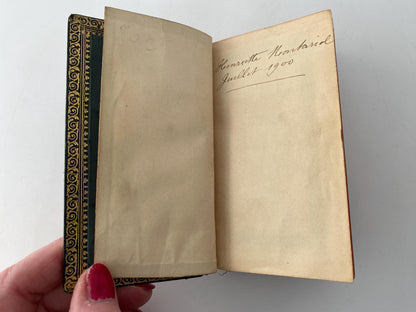 Henriette Montariol
Juillet 1900